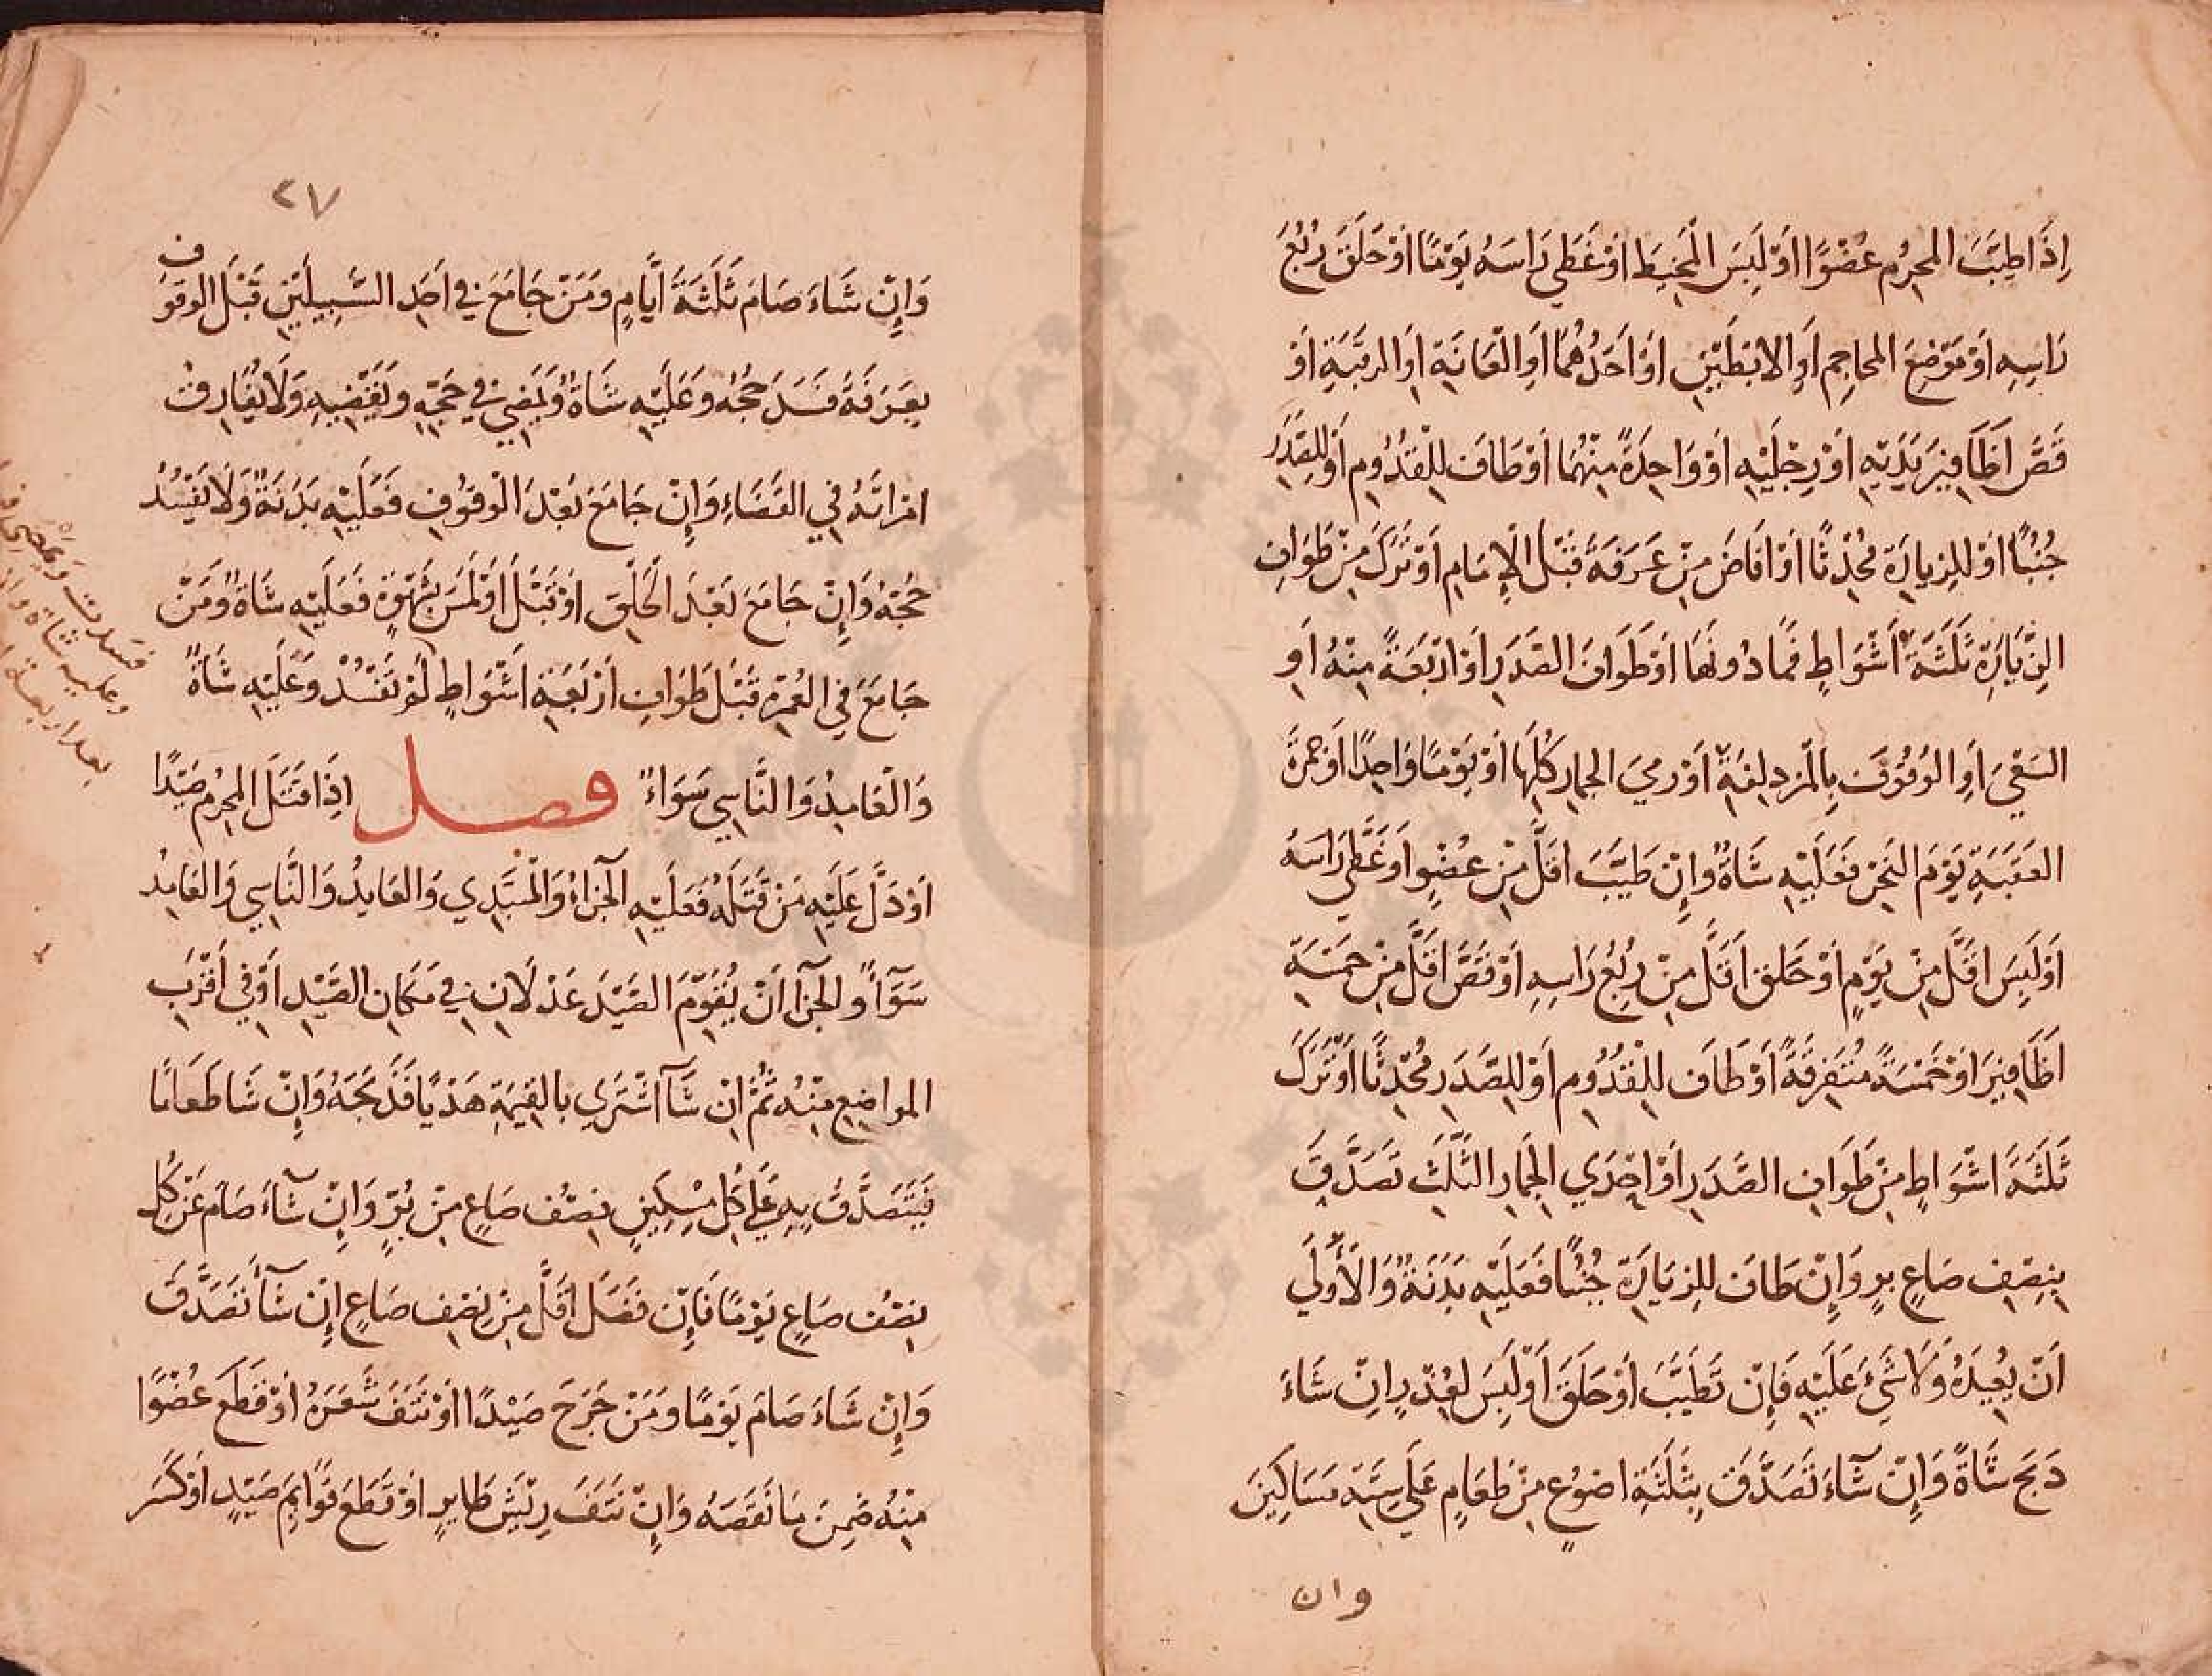 إِذَا طَيَّبَ المحرِمُ عُضْوًا اَوْ لَبِسَ الْمَخِيطَ اَوْ غَطَي رَاسَهُ يَوْمًا اَوْ حَلَقَ رُبُعَ
رَاسِهِ اَوْ مَوْضِعَ المحاجِمِ اَوِ الابْطَيْنِ اَوْ اَحَدُهُمَا اَوِ الْعَانَةِ اَوِ الرقبَةِ اَوْ
قَصَّ اَظَافِيرَ يَدَيْهِ اَوْ رِجْلَيْهِ اَوْ وَاحِدَةً مِنْهُمَا اَوْ طَافَ لِلْقُدُومِ اَوْ لِلصَّدَرِ
جُنُبًا اَوْ لِلزِيارَةِ مُحْدِثًا اَوْ اَفَاضَ مِنْ عَرَفَةَ قَبْلَ الْإِمَامِ اَوْ تَرَكَ مِنْ طَوَافِ
الزِّيَارَةِ ثَلَثَةَ أَشْوَاطٍ فَمَا دُونَهَا اَوْ طَوَافَ الصَّدَرِ اَوْ اَرْبَعَةً مِنْهُ اَوِ
السَعْيَ اَوِ الوُقُوفَ بِالْمُزدِلِفَةِ اَوْ رميَ الجمارِ كُلِهَا اَوْ يَوْمًا وَاحِدًا اَوْ جمرَةَ
العَقَبَةِ يَوْمَ النَحْرِ فَعَلَيْهِ شَاةٌ وَاِنْ طَيَّبَ اَقَلَّ مِنْ عُضْوٍ اَوْ غَطَّي رَاسَهُ
اَوْ لَبِسَ اَقَلَّ مِنْ يَوْمٍ اَوْ حَلَقَ اَقَلَّ مِنْ رُبُعِ رَاسِهِ اَوْ قَصَّ اَقَلَّ مِنْ خَمْسَةِ
اَظَافِيرَ اَوْ خَمْسَةً مُتَفَرِقَةً اَوْ طَافَ لِلْقُدُومِ اَوْ لِلصَّدَرِ مُحْدِثًا اَوْ تَرَكَ
ثَلَثَةَ اَشْوَاطٍ مِنْ طَوَافِ الصَّدَرِ اَوْ اِحْدَي الْجِمَارِ الثَّلَثِ تَصَدَّقَ
بِنِصْفِ صَاعِ برٍ وَاِنْ طَافَ لِلزِيَارَةِ جُنُبًا فَعَلَيْهِ بَدَنَةٌ وَالْأَوْلَي
اَنْ يُعِيدَهُ وَلَا شَيْءَ عَلَيْهِ فَاِنْ تَطَيَّبَ اَوْ حَلَقَ اَوْ لَبِسَ لِعُذْرٍ اِنْ شَاءَ
ذَبَحَ شَاةً وَاِنْ شَآءَ تَصَدَّقَ بِثَلَثَةِ اصْوُعٍ مِنْ طَعَامٍ عَلَي سِتَّةِ مَسَاكِينَ
وان
٢٧
وَاِنْ شَاءَ صَامَ ثَلَثَةَ اَيَّامٍ وَمَنْ جَامَعَ في اَحَدِ السَّبِيلَيْنِ قَبْلَ الوقوف
بِعَرَفَةَ فَسَدَ حَجُّهُ وَعَلَيْهِ شَاةٌ وَيَمْضِي في حَجِّهِ وَيَقْضِيهِ وَلَا يُفَارِقْ
امْرَاتَهُ فِي القَضَاءِ وَاِنْ جَامَعَ بَعْدَ الْوقوُفِ فَعَلَيْهِ بَدَنَةٌ وَلَا يَفْسُدُ
حَجُّهُ وَاِنْ جَامَعَ بَعْدَ الْحَلْقِ اَوْ قَبَّلَ اَوْ لَمَسَ بِشَهْوَةٍ فَعَلَيْهِ شَاةٌ وَمَنْ
جَامَعَ فِي العُمْرَةِ قَبْلَ طَوَافِ اَرْبَعَةِ اَشْوَاطٍ لَمْ تَفْسُدْ وَعَلَيْهِ شَاةٌ
وَالْعَامِدُ وَالنَّاسِي سَوَاءٌ فصل اِذَا قَتَلَ المحرِمُ صَيْدًا
اَوْ دَلَّ عَلَيْهِ مَنْ قَتَلَهُ فَعَلَيْهِ الْجَزَاءُ وَالْمُبْتَدِي وَالعَايِدُ وَالنَّاسِي وَالعَامِدُ
سَوَآءٌ وَالجزآ اَنْ يُقَوِّمَ الصَّيْدَ عَدْلَانِ في مَكَانِ الصَّيْدِ اَوْ فِي اَقْرَبِ
المواضِعِ مِنْهُ ثُمَّ اِنْ شَآ اشْتَرَي بالقِيمَةِ هَدْيًا فَذَبَحَهُ وَاِنْ شَا طَعَامًا
فَيَتَصَدَّقُ بِهِ عَلي كُلِ مِسْكِينٍ نِصْفُ صَاعٍ مِنْ بُرٍّ وَاِنْ شَآءَ صَامَ عَنْ كُلِ
نِصْفُ صَاعٍ يَوْمًا فَاِنْ فَضَلَ اَقَلَّ مِنْ نِصْفِ صَاعٍ اِنْ شَآ تَصَدَّقَ
وَاِنْ شَاءَ صَامَ يَوْمًا وَمَنْ جَرَحَ صَيْدًا اَوْ نَتَفَ شَعَرَهُ اَوْ قَطَعَ عُضْوًا
مِنْهُ ضَمِنَ مَا نَقَصَهُ وَاِنْ نَتَفَ رِيْشَ طَايِرٍ اَوْ قَطَعَ قَوَايِمَ صَيْدٍ اَوْ كَسَرَ
فسدت ويمضي
وعليه شاة
بعد اربعة